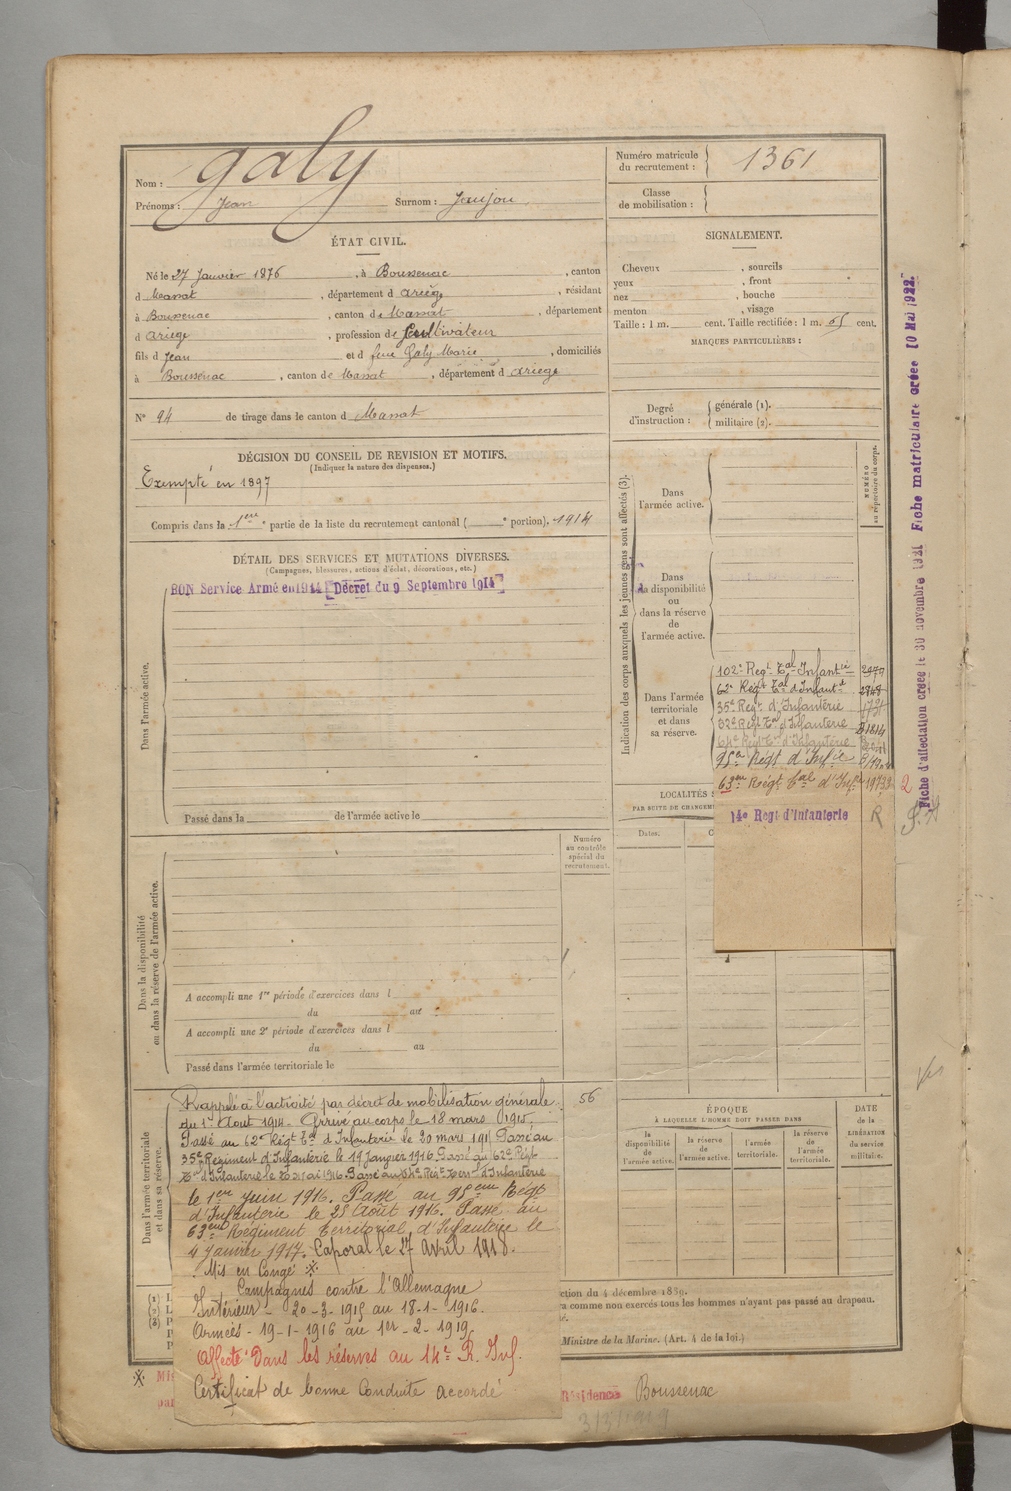 Nom : Galy
Prénoms : Jean Surnom : Jaujou
Numéro matricule
du recrutement : 1361
Classe
de mobilisation :
ÉTAT CIVIL.
Né le 27 Janvier 1876, à Boussenac, canton
d Massat, département d Ariège, résidant
à Boussenac, canton de Massat, département
d Ariège, profession de Cultivateur
fils d Jean et d feue Galy Marie, domiciliés
à Boussenac, canton de Massat, département d Ariège
N° 94 de tirage dans le canton d Massat
SIGNALEMENT.
Cheveux , sourcils
yeux , front
nez , bouche
menton , visage
Taille : 1 m. cent. Taille rectifiée : 1 m. 65 cent.
MARQUES PARTICULIÈRES :
Degré
d'instruction :
générale (1).
militaire (2).
DÉCISION DU CONSEIL DE REVISION ET MOTIFS.
(Indiquez la nature des dispenses.)
Exempté en 1897
Compris dans la 1ère partie de la liste du recrutement cantonal ( e portion). 1914
DÉTAIL DES SERVICES ET MUTATIONS DIVERSES.
(Campagnes, blessures, actions d'éclat, décorations, etc.)
BON Service Armé en 1914 [Décret du 9 Septembre 1914]
Dans l'armée active.
Passé dans la de l'armée active le
Indication des corps auxquels les jeunes gens sont affectés (3).
NUMÉRO
au répertoire du corps.
Dans
l'armée active.
Dans
la disponibilité
ou
dans la réserve
de
l'armée active.
Dans l'armée
territoriale
et dans
sa réserve.
102e Regt Tal Infantie
62e Régt Tal d'Infant
35e Regt d'Infanterie
62e Régt Ter d'Infanterie
64e Régt Ter d'Infanterie
95e Régt d'Infie
63eme Régt Tal d'Infie
14e Regt d'Infanterie R
LOCALITÉS
PAR SUITE DE CHANGEM
Dates.
Fiche d'affectation créée le 30 novembre 1921 Fiche matriculaire créée 10 Mai 1922.
Dans la disponibilité
ou dans la réserve de l'armée active.
Numéro
au contrôle
spécial du
recrutement.
A accompli une 1re période d'exercices dans l
du au
A accompli une 2e période d'exercices dans l
du au
Passé dans l'armée territoriale le
Dans l'armée territoriale
et dans sa réserve.
Rappelé à l'activité par décret de mobilisation générale 56
du 1er Août 1914. Arrivé au corps le 18 mars 1915.
Passé au 62e Régt Tal d'Infanterie le 20 mars 1915 Passé au
35e Régiment d'Infanterie le 19 janvier 1916. Passé au 62e Régt
Ter d'Infanterie le 20 mai 1916. Passé au 64e Régt Terr d'Infanterie
le 1er Juin 1916. Passé au 95eme Régt
d'Infanterie le 25 Août 1916. Passé au
63eme Régiment Territorial d'Infanterie le
4 janvier 1917. Caporal le 27 Avril 1918.
Mis en Congé ※
Campagnes contre l'Allemagne
Intérieur - 20-3-1915 au 18-1-1916.
Armées - 19-1-1916 au 1er-2-1919.
Affecté Dans les réserves au 14e R. Inf.
Certificat de bonne Conduite accordé
ÉPOQUE
À LAQUELLE L'HOMME DOIT PASSER DANS
DATE
de la
LIBÉRATION
du service
militaire.
la
disponibilité
de
l'armée active.
la réserve
de
l'armée active.
l'armée
territoriale.
la réserve
de
l'armée
territoriale.
(1) I
(2) L
(3) P
ction du 4 décembre 1889.
ra comme non exercés tous les hommes n'ayant pas passé au drapeau.
Ministre de la Marine. (Art. 4 de la loi.)
Résidence Boussenac
3/3/1919